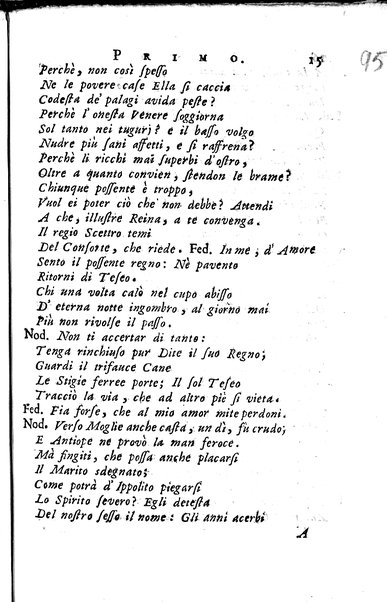 PRIMO. 15 95
Perchè, non così ſpeſſo
Ne le povere caſe Ella ſi caccia
Codeſta de' palagi avida peſte?
Perchè l' oneſta Venere ſoggiorna
Sol tanto nei tugurj? e il baſſo volgo
Nudre più ſani affetti, e ſi raffrena?
Perchè li ricchi mai ſuperbi d'oſtro,
Oltre a quanto convien, ſtendon le brame?
Chiunque poſſente è troppo,
Vuol ei poter ciò che non debbe? Attendi
A che, illuſtre Reina, a te convenga.
Il regio Scettro temi
Del Conſorte, che riede. Fed. In me, d' Amore
Sento il poſſente regno: Nè pavento
Ritorni di Teſeo.
Chi una volta calò nel cupo abiſſo
D' eterna notte ingombro, al giorno mai
Più non rivolſe il paſſo.
Nod. Non ti accertar di tanto:
Tenga rinchiuſo pur Dite il ſuo Regno;
Guardi il trifauce Cane
Le Stigie ferree porte; Il ſol Teſeo
Tracciò la via, che ad altro piè ſi vieta.
Fed. Fia forſe, che al mio amor mite perdoni.
Nod. Verſo Moglie anche caſta, un dì, fu crudo;
E Antiope ne provò la man feroce.
Mà fingiti, che poſſa anche placarſi
Il Marito sdegnato;
Come potrà d' Ippolito piegarſi
Lo Spirito ſevero? Egli deteſta
Del noſtro ſeſſo il nome: Gli anni acerbi
A